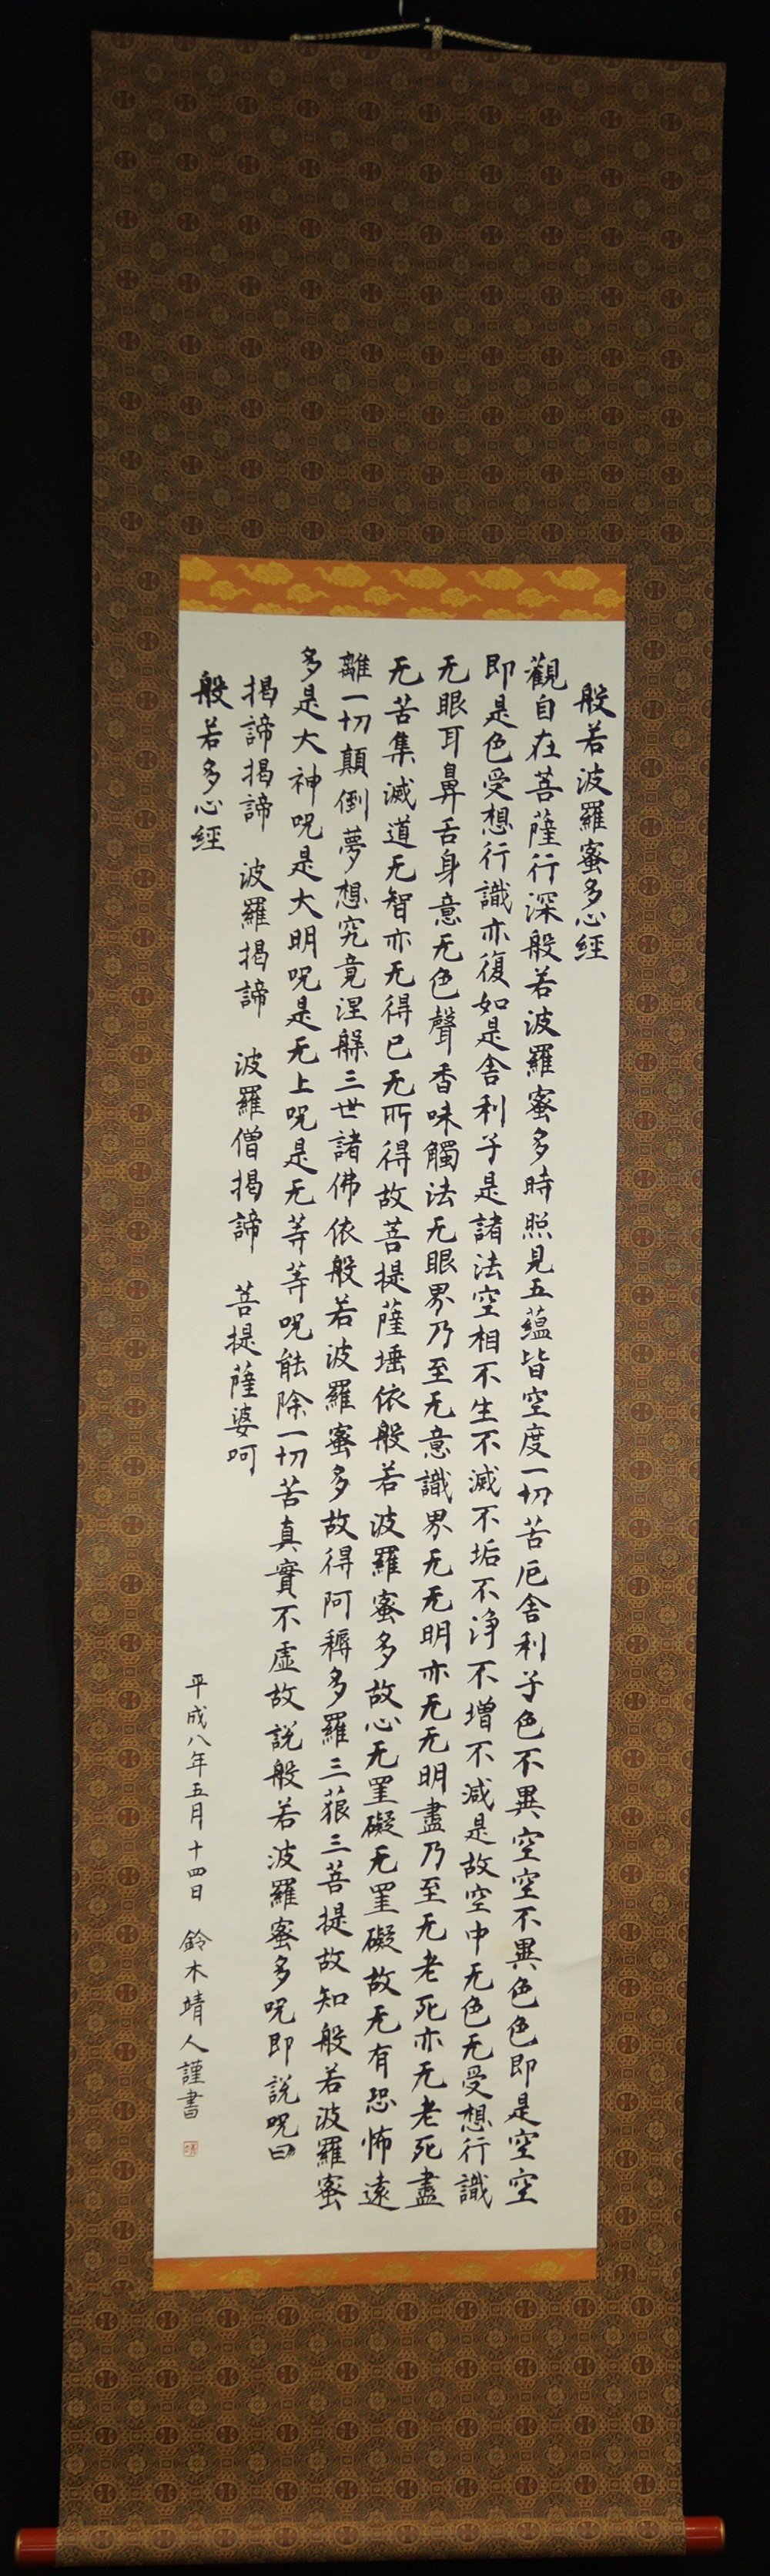 般若波羅蜜多心經
觀自在菩薩行深般若波羅蜜多時照見五蘊皆空度一切苦厄舍利子色不異空空不異色色即是空空
即是色受想行識亦復如是舍利子是諸法空相不生不滅不垢不浄不増不減是故空中无色无受想行識
无眼耳鼻舌身意无色聲香味觸法无眼界乃至无意識界无无明亦无无明盡乃至无老死亦无老死盡
无苦集滅道无智亦无得已无所得故菩提薩埵依般若波羅蜜多故心无罣礙无罣礙故无有恐怖遠
離一切顛倒夢想究竟涅槃三世諸佛依般若波羅蜜多故得阿耨多羅三藐三菩提故知般若波羅蜜
多是大神呪是大明呪是无上呪是无等等呪能除一切苦真實不虚故説般若波羅蜜多呪即説呪曰
揭諦揭諦 波羅揭諦 波羅僧揭諦 菩提薩婆呵
般若多心經
平成八年五月十四日 鈴木靖人謹書
靖